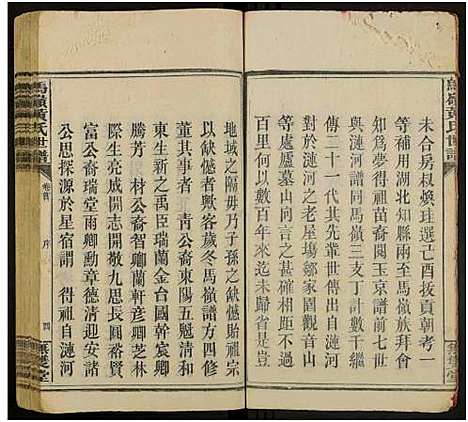 未合房叔煥珪選己酉拔貢朝考一
知為夢得祖苗裔閱玉京譜前七世
等知用湖北知縣兩至馬嶺族拜會
與漣河譜同馬嶺三支丁計數千繼
傳二十一代其先輩世傳由江西同
對於漣河之老屋塲鄒家園觀音山
等處廬墓言之甚確相距不過
百里何以數百年來未歸省是豈
馬嶺黃氏世譜
卷首
序
四
無雙堂
地域之隔毋乃子孫之缺憾貽祖宗
以缺憾者歟客歲冬馬嶺譜方四修
董其事者 青公裔東陽五魁清和
東生新之禹臣瑞蘭金台國幹宸卿
騰芳 材公裔智卿蘭軒彥卿芝林
際生亮成開志開敬九思長圓裕兮
富公裔瑞堂雨卿勳章德清迎安諸
公思探源於星宿謂 得祖自漣河